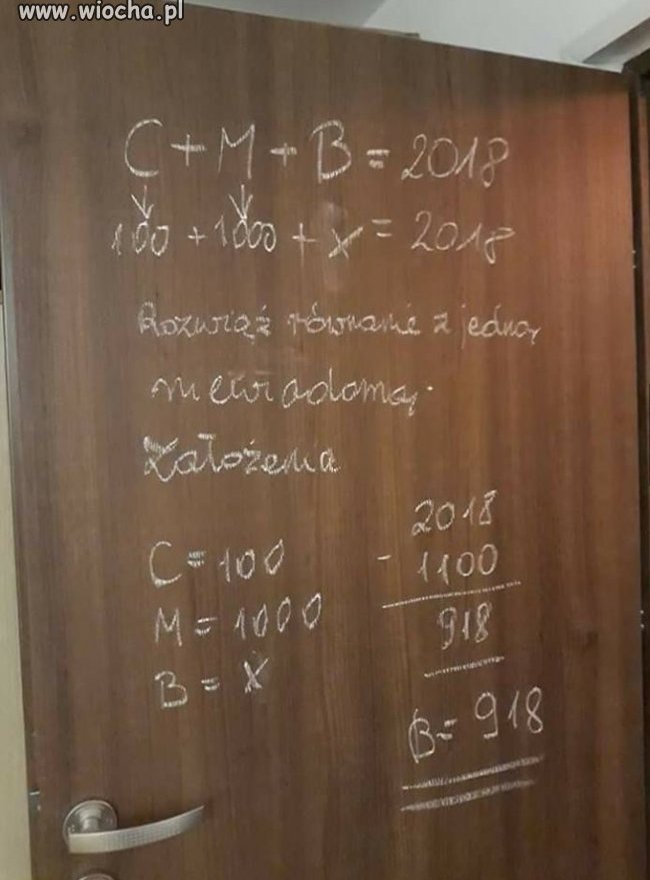 www.wiocha.pl
C + M + B = 2018
100 + 1000 + x = 2018
Rozwiąż równanie z jedną
niewiadomą.
Założenia
C = 100
M = 1000
B = X
2018
- 1100
918
B = 918